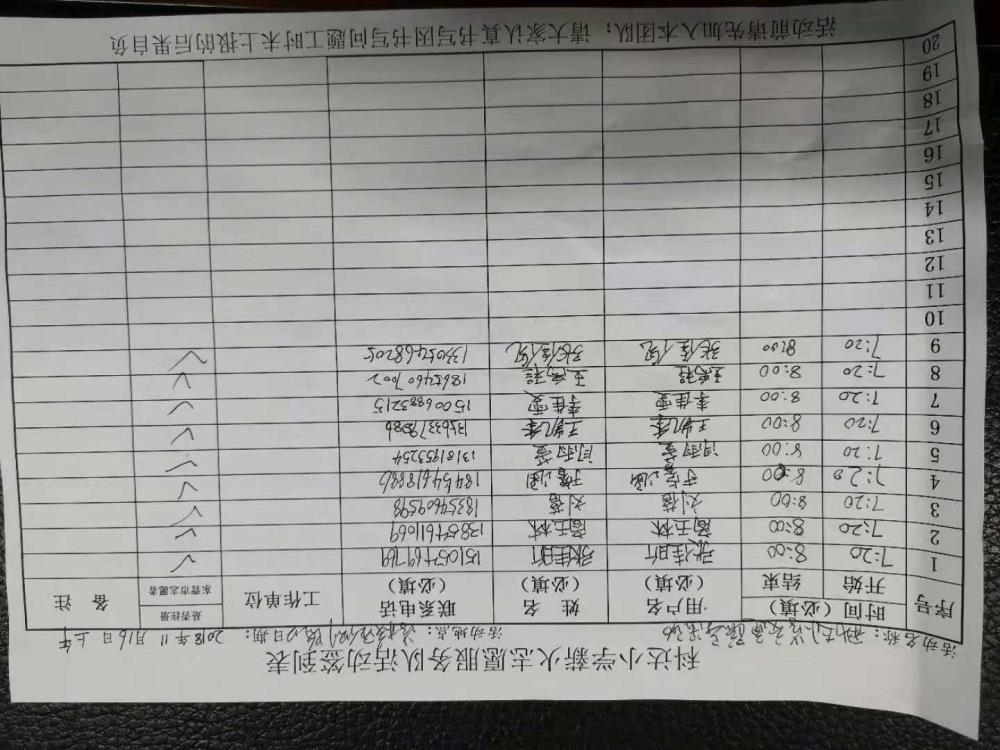 科达小学薪火志愿服务队活动签到表
活动名称: 活动地点: 活动日期: 2018年11月16日 上午
序号 时间(必填) 用户名(必填) 姓 名(必填) 联系电话(必填) 工作单位 是否注册东营市志愿者 备 注
开始 结束
1 7:20 8:00 张佳昕 张佳昕 15105469769 ✓
2 7:20 8:00 商玉林 商玉林 13854611069 ✓
3 7:20 8:00 刘蓓 刘蓓 18354609598 ✓
4 7:20 8:00 18454618886 ✓
5 7:20 8:00 闫雨萱 闫雨萱 13181953254 ✓
6 7:20 8:00 王凯 王凯 ✓
7 7:20 8:00 李佳雯 李佳雯 15006883215 ✓
8 7:20 8:00 18654607002 ✓
9 7:20 8:00 张佳 张佳 13305468205 ✓
10
11
12
13
14
15
16
17
18
19
20
活动前请先加入本团队; 请大家认真书写因书写问题工时未上报的后果自负